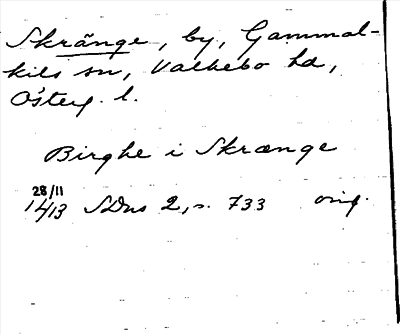 Skränge, by, Gammal-
kils sn, Valkebo hd,
Österg. l.
Birghe i Skrænge
28/11
14/13 SDns 2, s. 733 orig.